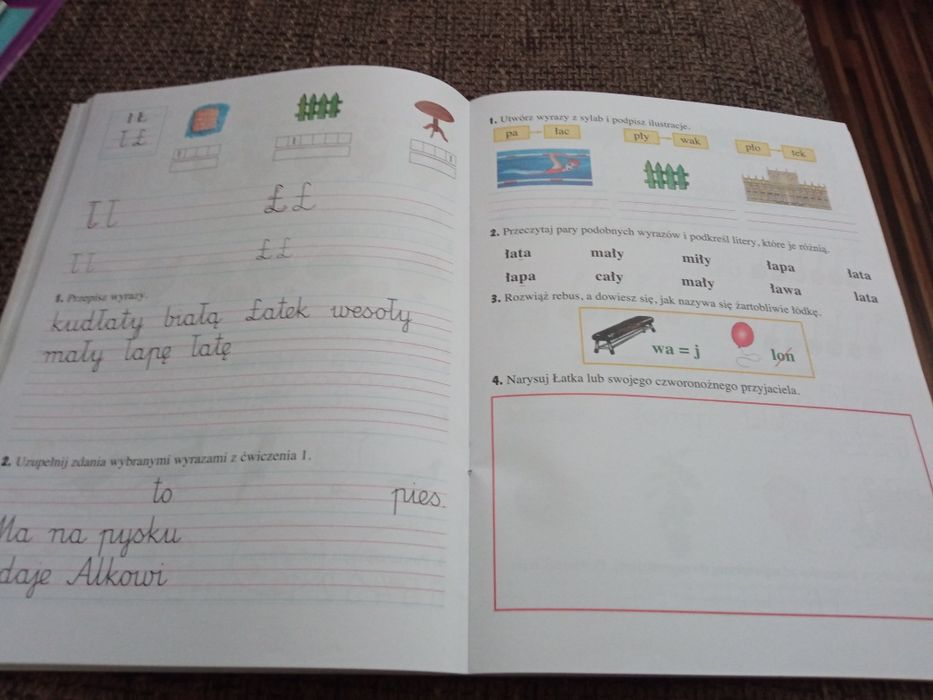 ł Ł
ł Ł
ł ł Ł Ł
ł ł Ł Ł
1. Przepisz wyrazy.
kudłaty białą Łatek wesoły
mały łapę łatę
2. Uzupełnij zdania wybranymi wyrazami z ćwiczenia 1.
to pies.
Ma na pysku
daje Alkowi
1. Utwórz wyrazy z sylab i podpisz ilustracje.
pa łac pły wak pło tek
2. Przeczytaj pary podobnych wyrazów i podkreśl litery, które je różnią.
łata mały miły łapa łata
łapa cały mały ława lata
3. Rozwiąż rebus, a dowiesz się, jak nazywa się żartobliwie łódkę.
wa = j lon
4. Narysuj Łatka lub swojego czworonożnego przyjaciela.